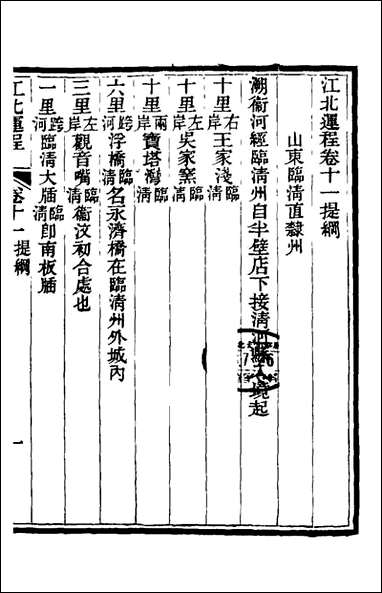 江北運程卷十一提綱
山東臨清直隸州
溯衞河經臨清州自半壁店下接清河縣入境起
十里右岸王家淺臨清
十里左岸吳家窯臨清
十里兩岸寶塔灣臨清
六里跨河浮橋臨清名永濟橋在臨清州外城內
三里左岸觀音嘴臨清衞汶初合處也
一里跨河臨清大牐臨清卽南板牐
江北運程 卷十一提綱 一